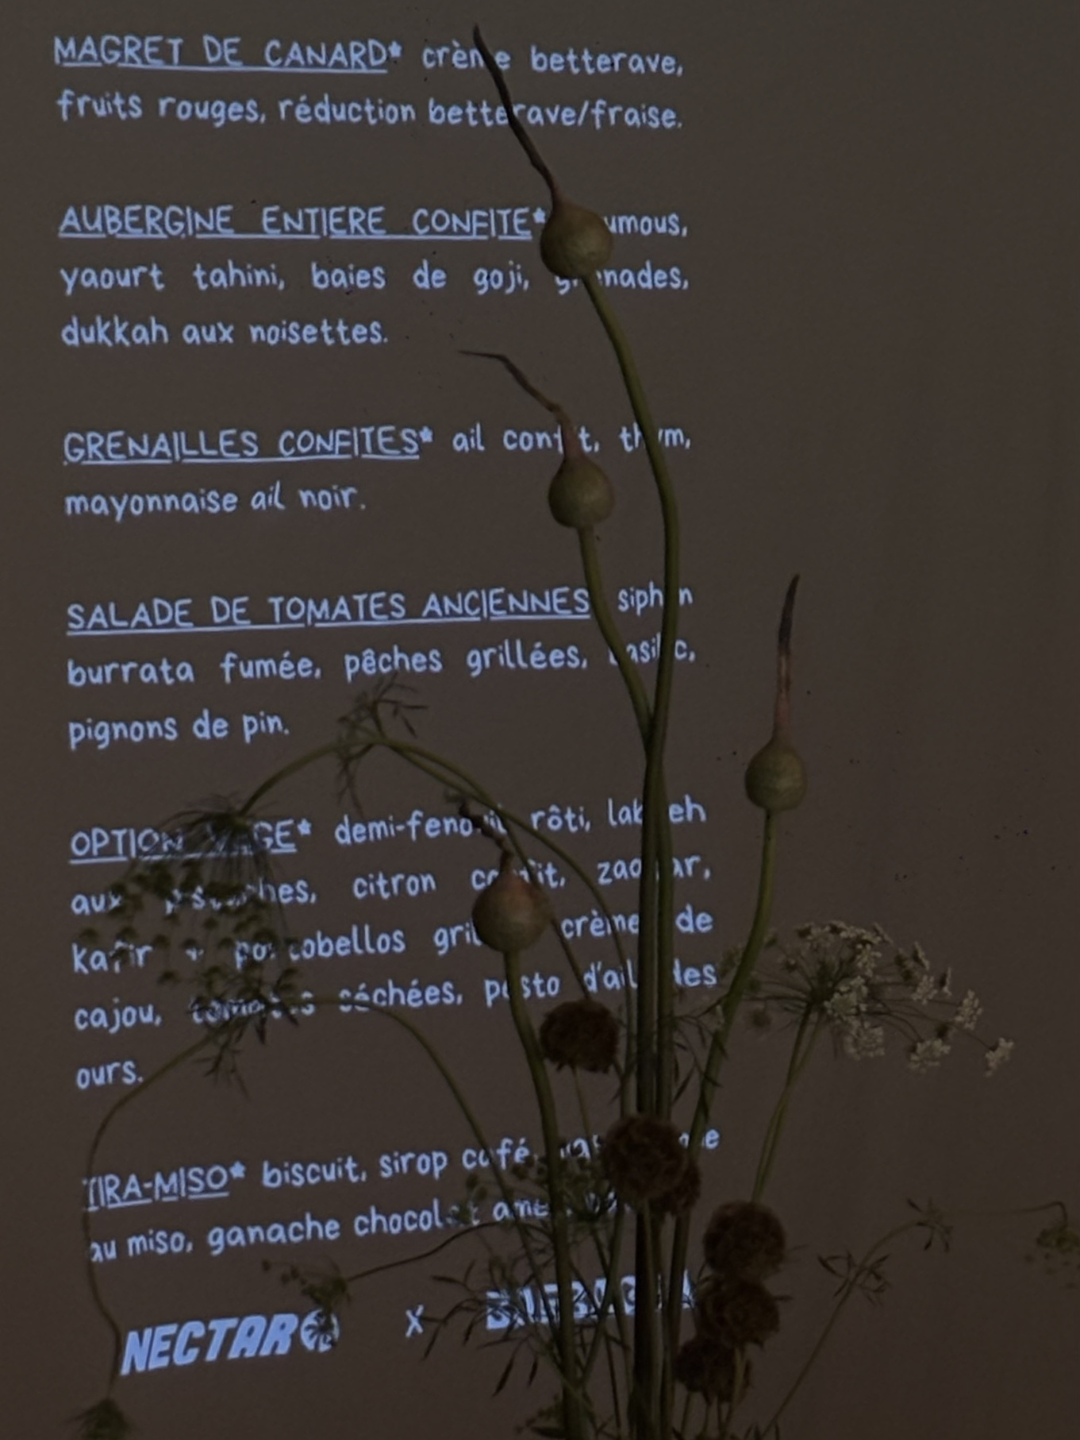 MAGRET DE CANARD* crème betterave,
fruits rouges, réduction betterave/fraise.
AUBERGINE ENTIERE CONFITE* houmous,
yaourt tahini, baies de goji, grenades,
dukkah aux noisettes.
GRENAILLES CONFITES* ail confit, thym,
mayonnaise ail noir.
SALADE DE TOMATES ANCIENNES siphon
burrata fumée, pêches grillées, basilic,
pignons de pin.
OPTION VEGE* demi-fenouil rôti, labneh
aux pistaches, citron confit, zaatar,
portobellos crème de
cajou, tomates séchées, pesto d'ail des
ours.
TIRA-MISO* biscuit, sirop café,
au miso, ganache chocolat
NECTAR X